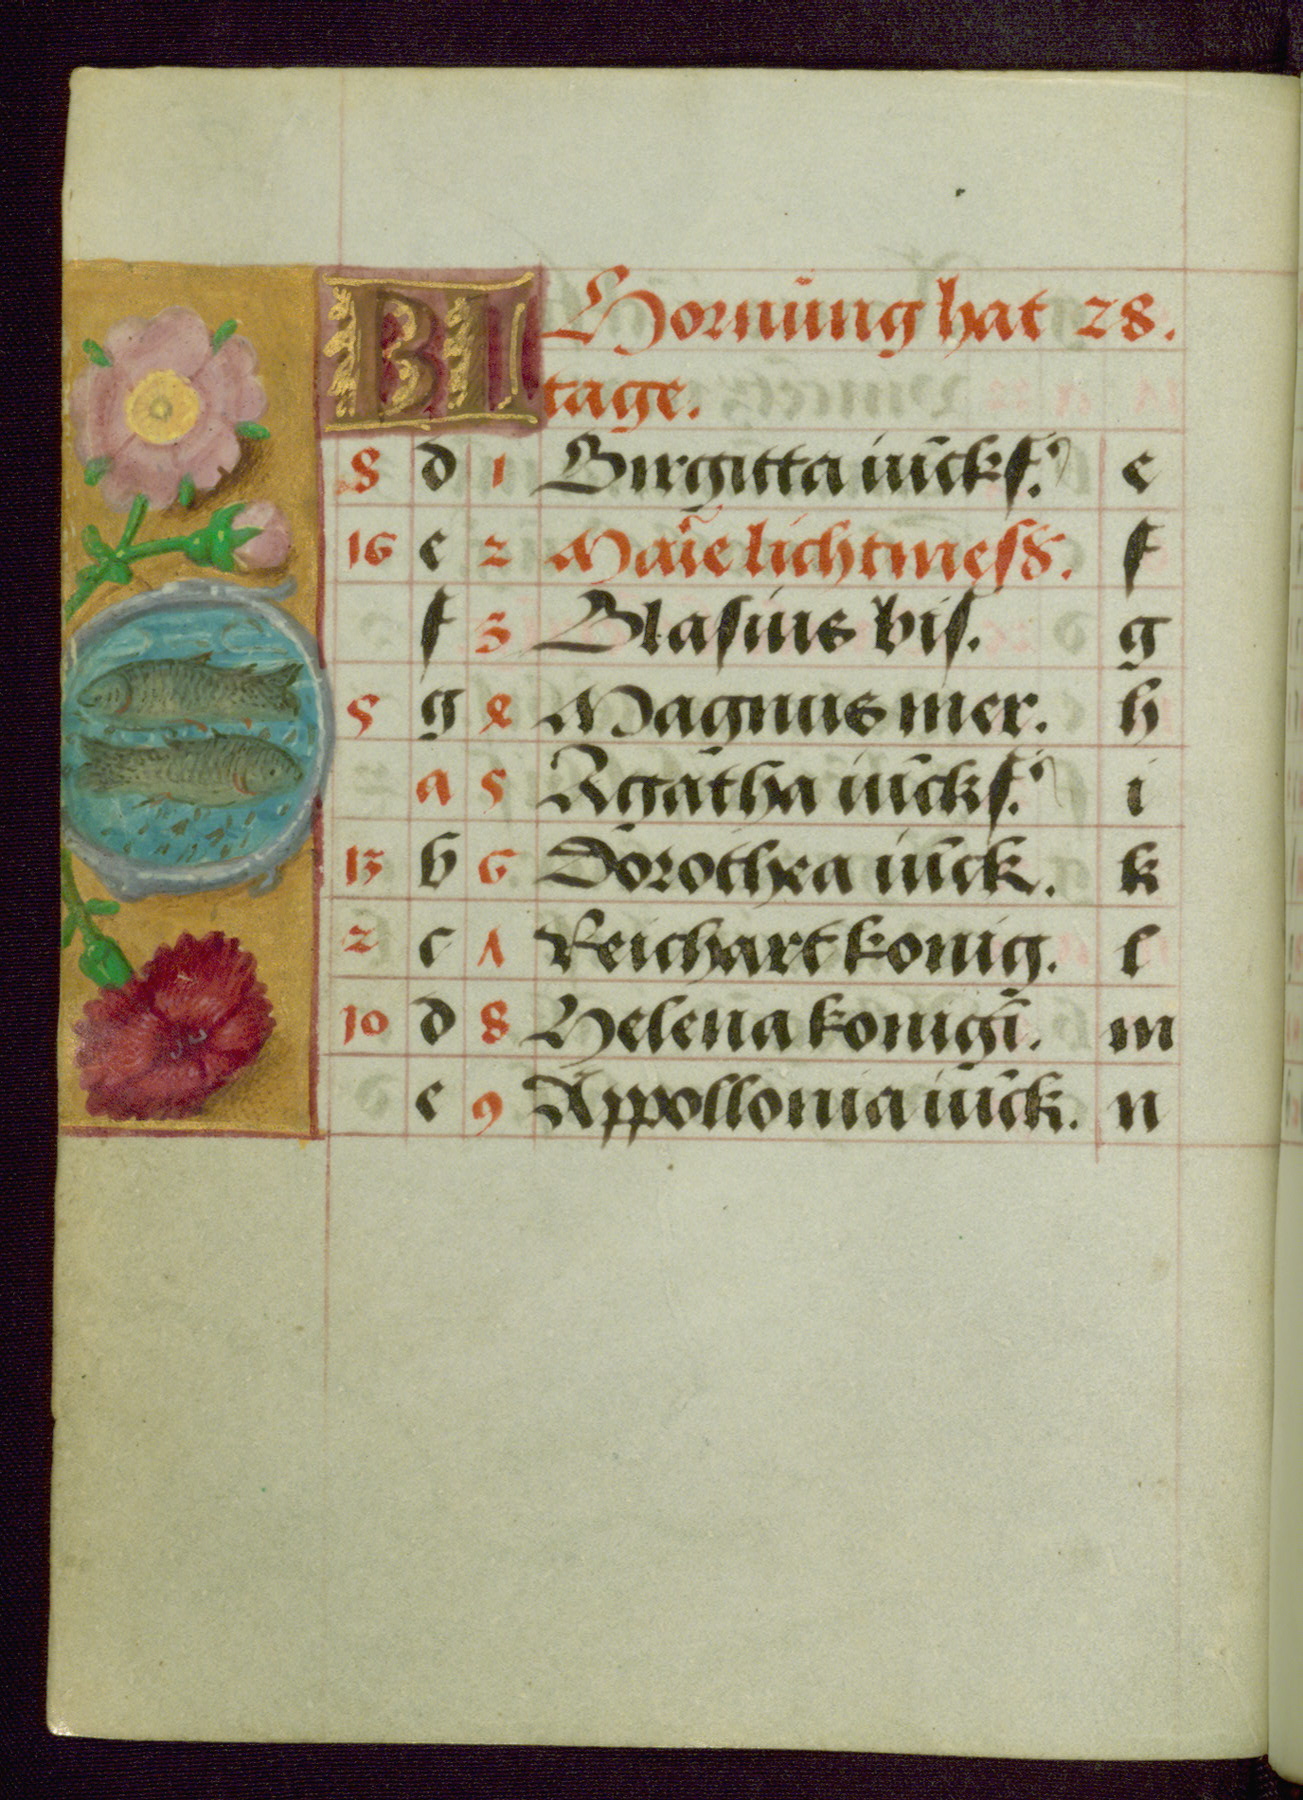 KL Hornŭng hat 28.
tage.
8 d 1 Birgitta iūckf. e
16 e 2 Marie lichtmeſs. f
f 3 Blaſius biſ. g
5 g 4 Magnus mer. h
a 5 Agatha iūckf. i
13 b 6 Dorothea iūck. k
2 c 7 Reichart konig. l
10 d 8 Helena konigī. m
e 9 Appollonia iūck. n